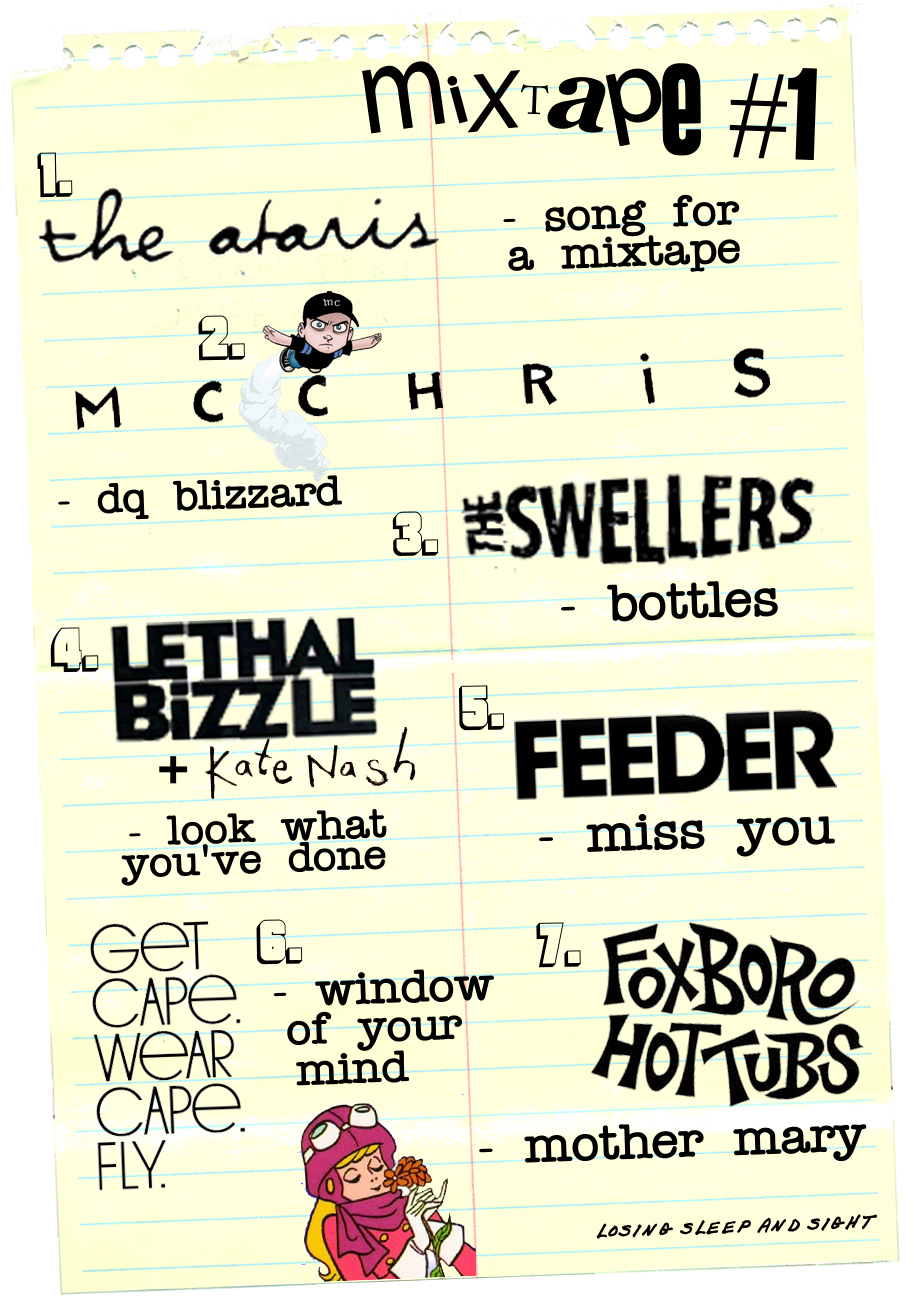 mixTape #1
1.
the ataris
- song for
a mixtape
2.
mc
M C C H R i S
- dq blizzard
3.
THE SWELLERS
- bottles
4.
LETHAL
BiZZLE
+ Kate Nash
- look what
you've done
5.
FEEDER
- miss you
6.
GeT
CAPe.
WeAR
CAPe.
FLY.
- window
of your
mind
7.
FOXBORO
HOT TUBS
- mother mary
LOSING SLEEP AND SIGHT